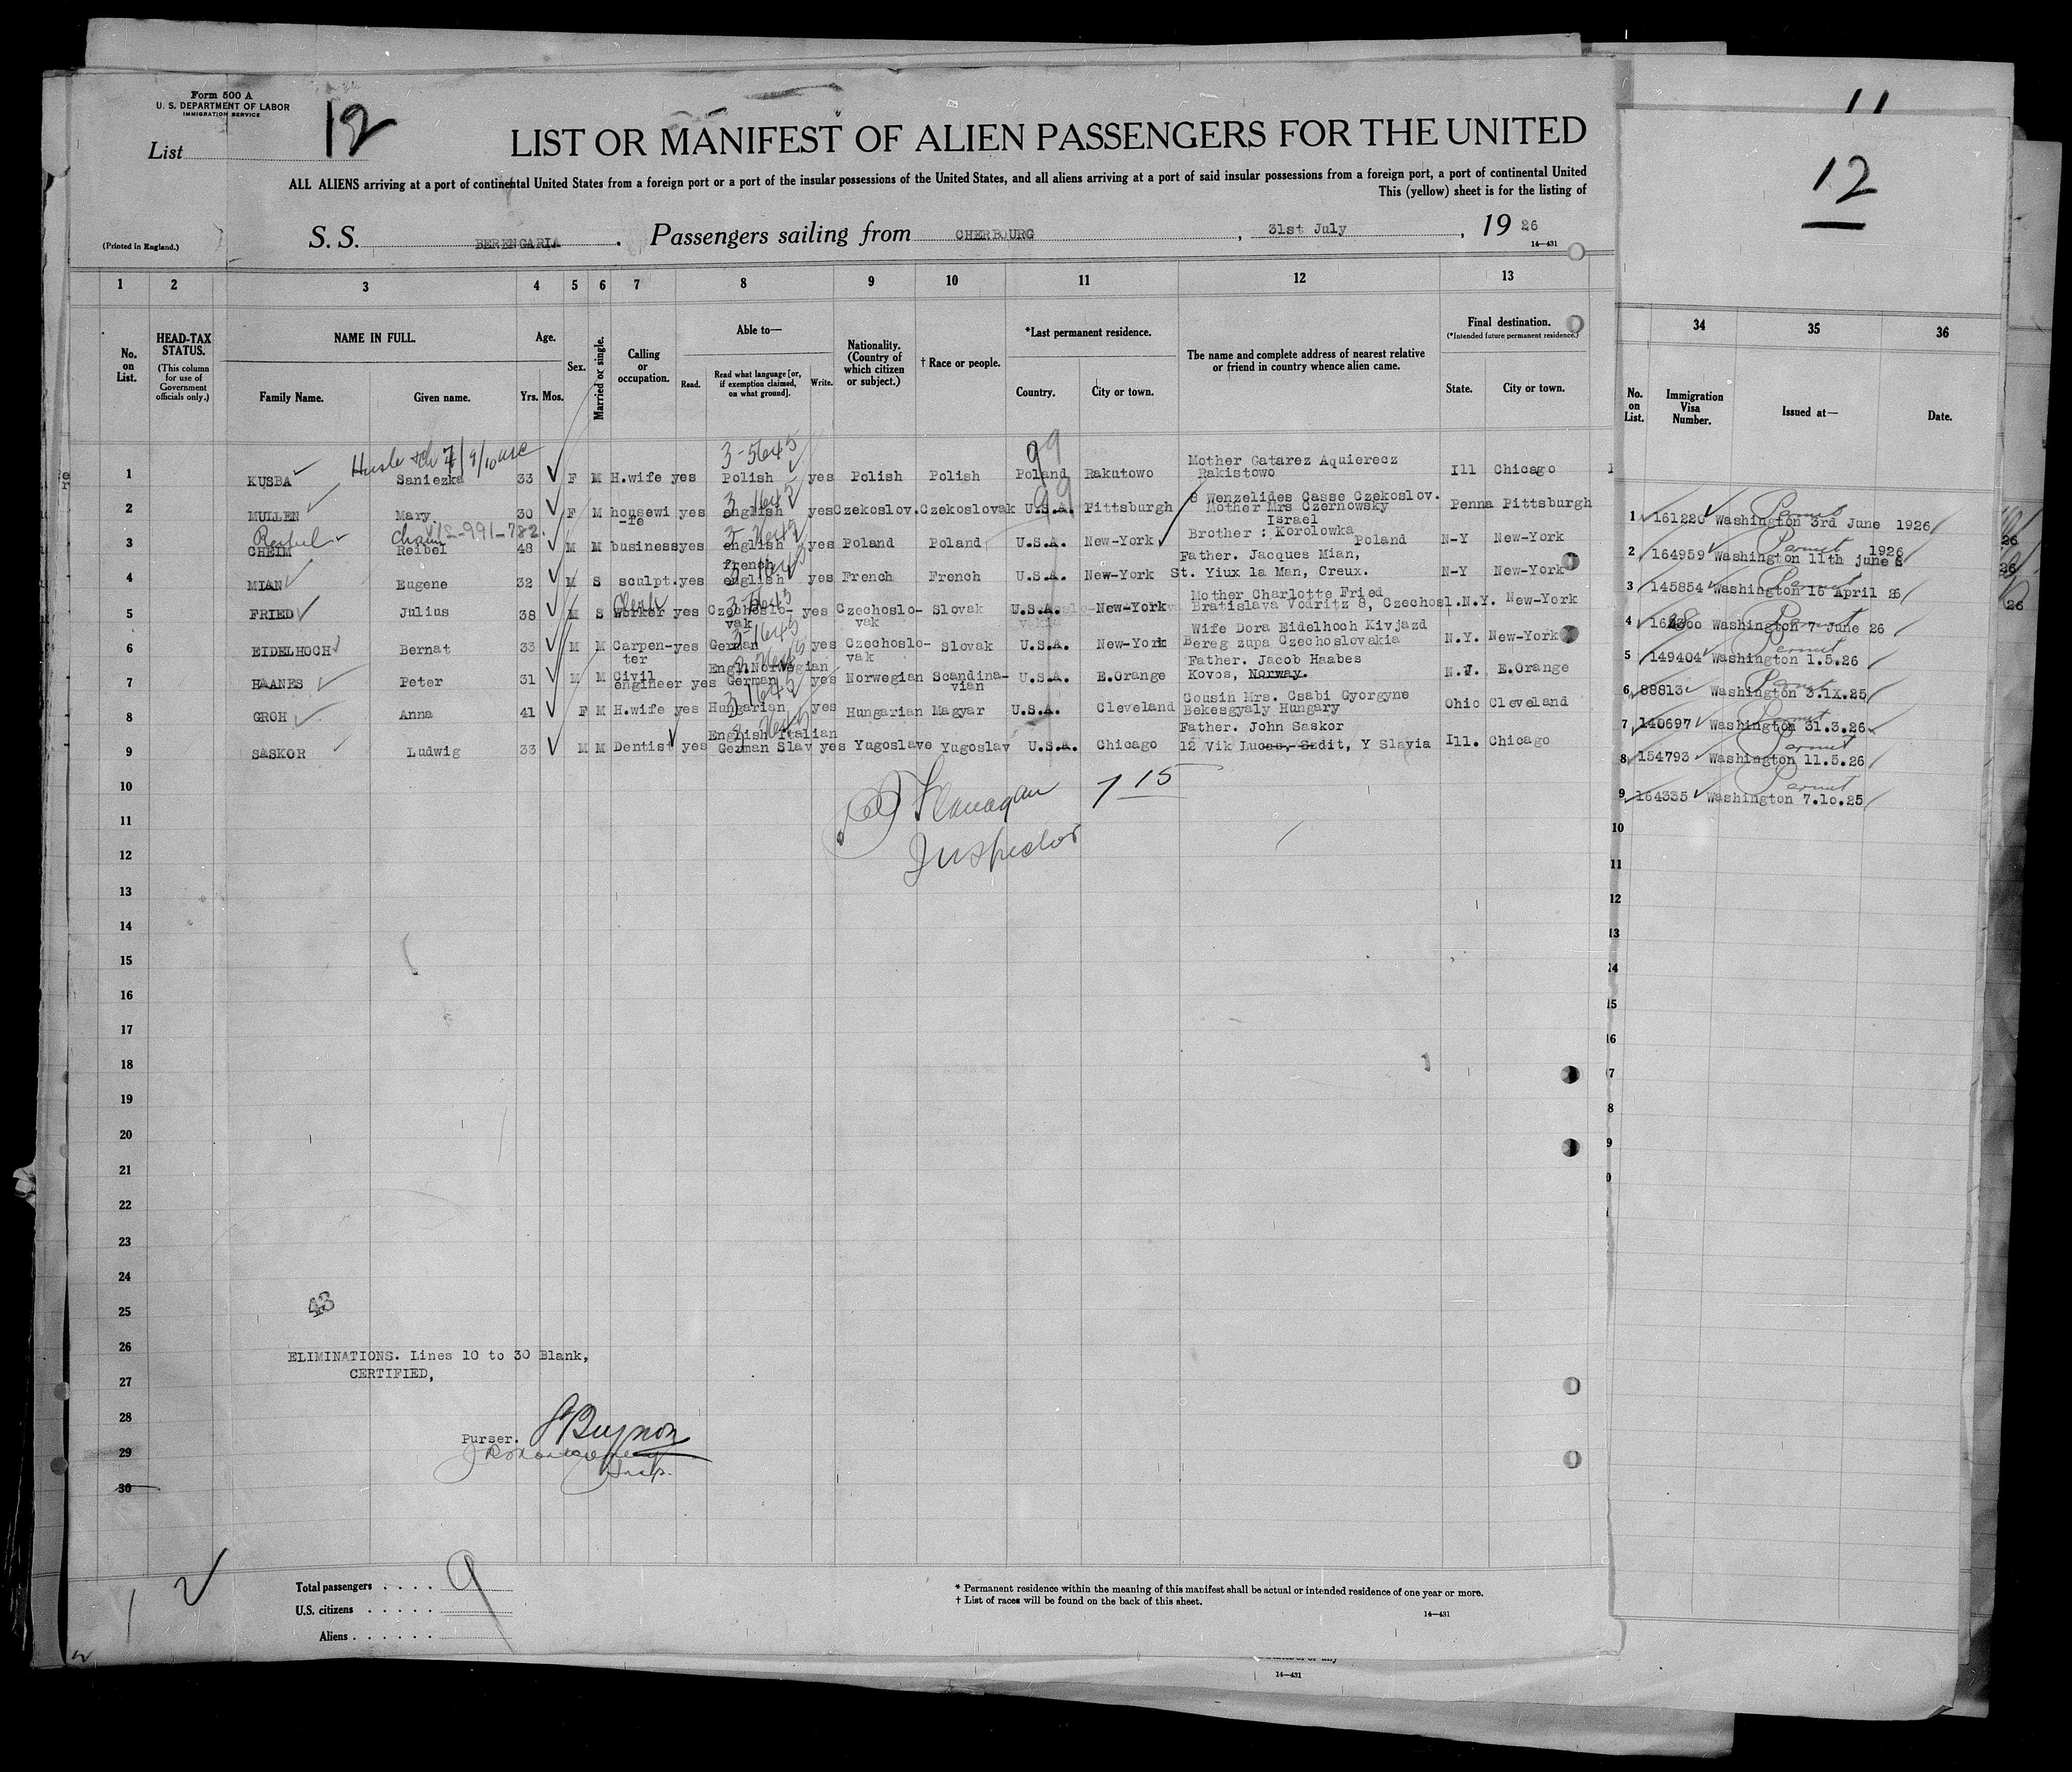 Form 500 A
U. S. DEPARTMENT OF LABOR
IMMIGRATION SERVICE
List 12
LIST OR MANIFEST OF ALIEN PASSENGERS FOR THE UNITED
ALL ALIENS arriving at a port of continental United States from a foreign port or a port of the insular possessions of the United States, and all aliens arriving at a port of said insular possessions from a foreign port, a port of continental United
This (yellow) sheet is for the listing of
(Printed in England.)
S. S. BERENGARIA. Passengers sailing from CHERBOURG, 31st July, 19 26
14—431
1 2 3 4 5 6 7 8 9 10 11 12 13
No. on List.
HEAD-TAX STATUS.
(This column for use of Government officials only.)
NAME IN FULL.
Family Name. Given name.
Age.
Yrs. Mos.
Sex.
Married or single.
Calling or occupation.
Able to—
Read. Read what language [or, if exemption claimed, on what ground]. Write.
Nationality. (Country of which citizen or subject.)
† Race or people.
*Last permanent residence.
Country. City or town.
The name and complete address of nearest relative or friend in country whence alien came.
Final destination.
(*Intended future permanent residence.)
State. City or town.
3-5645
99
1 KUSBA Saniezka 33 F M H.wife yes Polish yes Polish Polish Poland Rakutowo Mother Gatarez Aquierecz Rakistowo Ill Chicago
2 MULLEN Mary. 30 F M housewi-fe yes english yes Czekoslov. Czekoslovak U.S.A. Pittsburgh 8 Wenzelides Casse Czekoslov. Mother Mrs Czernowsky Penna Pittsburgh
Reibel Chaim
3 CHEIM Reibel 48 M M business yes english yes Poland Poland U.S.A. New-York Israel Brother : Korolowka Poland N-Y New-York
4 MIAN Eugene 32 M S sculpt. yes french english yes French French U.S.A. New-York Father. Jacques Mian, St. Yiux la Man, Creux. N-Y New-York
Clerk
5 FRIED Julius 38 M S Worker yes Czechoslo-vak yes Czechoslo-vak Slovak U.S.A. New-York Mother Charlotte Fried Bratislava Vodritz 8, Czechosl. N.Y. New-York
6 EIDELHOCH Bernat 33 M M Carpen-ter yes German yes Czechoslo-vak Slovak U.S.A. New-York Wife Dora Eidelhoch Kivjazd Bereg zupa Czechoslovakia N.Y. New-York
7 HAANES Peter 31 M M Civil engineer yes Engl. Norwegian German yes Norwegian Scandina-vian U.S.A. E.Orange Father. Jacob Haabes Kovos, Norway. N.J. E.Orange
8 GROH Anna 41 F M H.wife yes Hungarian yes Hungarian Magyar U.S.A. Cleveland Cousin Mrs. Csabi Gyorgyne Bekesgyaly Hungary Ohio Cleveland
9 SASKOR Ludwig 33 M M Dentist yes English Italian German Slav yes Yugoslave Yugoslav U.S.A. Chicago Father. John Saskor 12 Vik Lucos, Szdit, Y Slavia Ill. Chicago
10
Flanagan 7 15
11
Inspector
12
13
14
15
16
17
18
19
20
21
22
23
24
25
43
26
ELIMINATIONS. Lines 10 to 30 Blank,
27
CERTIFIED,
28
Purser. Beynon
29
Insp.
30
Total passengers . . . . 9
U.S. citizens . . . . .
Aliens . . . . . .
* Permanent residence within the meaning of this manifest shall be actual or intended residence of one year or more.
† List of races will be found on the back of this sheet.
14—431
14—431
11
12
34 35 36
No. on List.
Immigration Visa Number.
Issued at—
Date.
Permit
1 161220 Washington 3rd June 1926
Permit
2 164959 Washington 11th june 1926
Permit
3 145854 Washington 15 April 26
Permit
4 Washington 7 June 26
Permit
5 149404 Washington 1.5.26
Permit
6 88813 Washington 3.1X.25
Permit
7 140697 Washington 31.3.26
Permit
8 154793 Washington 11.5.26
Permit
9 164335 Washington 7.10.25
10
11
12
13
14
15
16